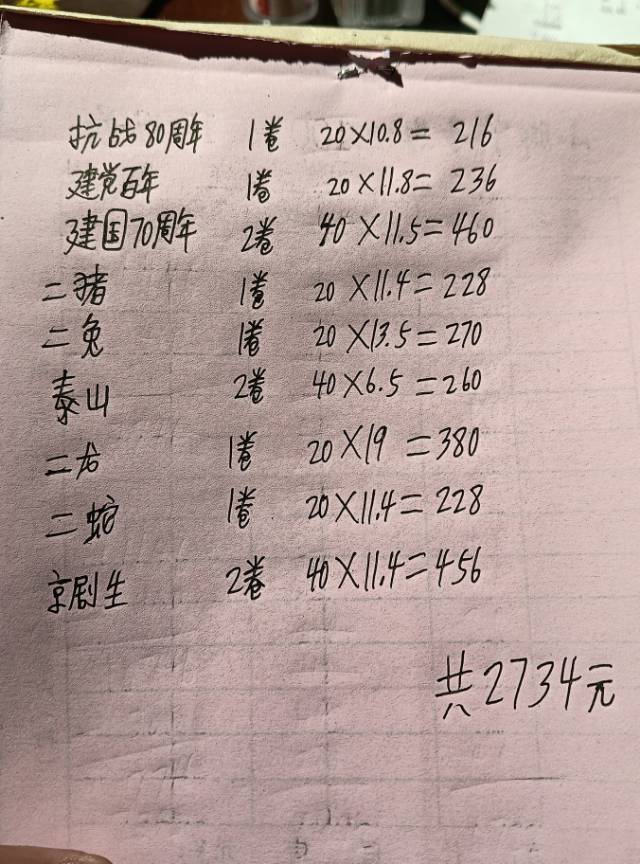 抗战80周年 1卷 20×10.8=216
建党百年 1卷 20×11.8=236
建国70周年 2卷 40×11.5=460
二猪 1卷 20×11.4=228
二兔 1卷 20×13.5=270
泰山 2卷 40×6.5=260
二龙 1卷 20×19=380
二蛇 1卷 20×11.4=228
京剧生 2卷 40×11.4=456
共2734元